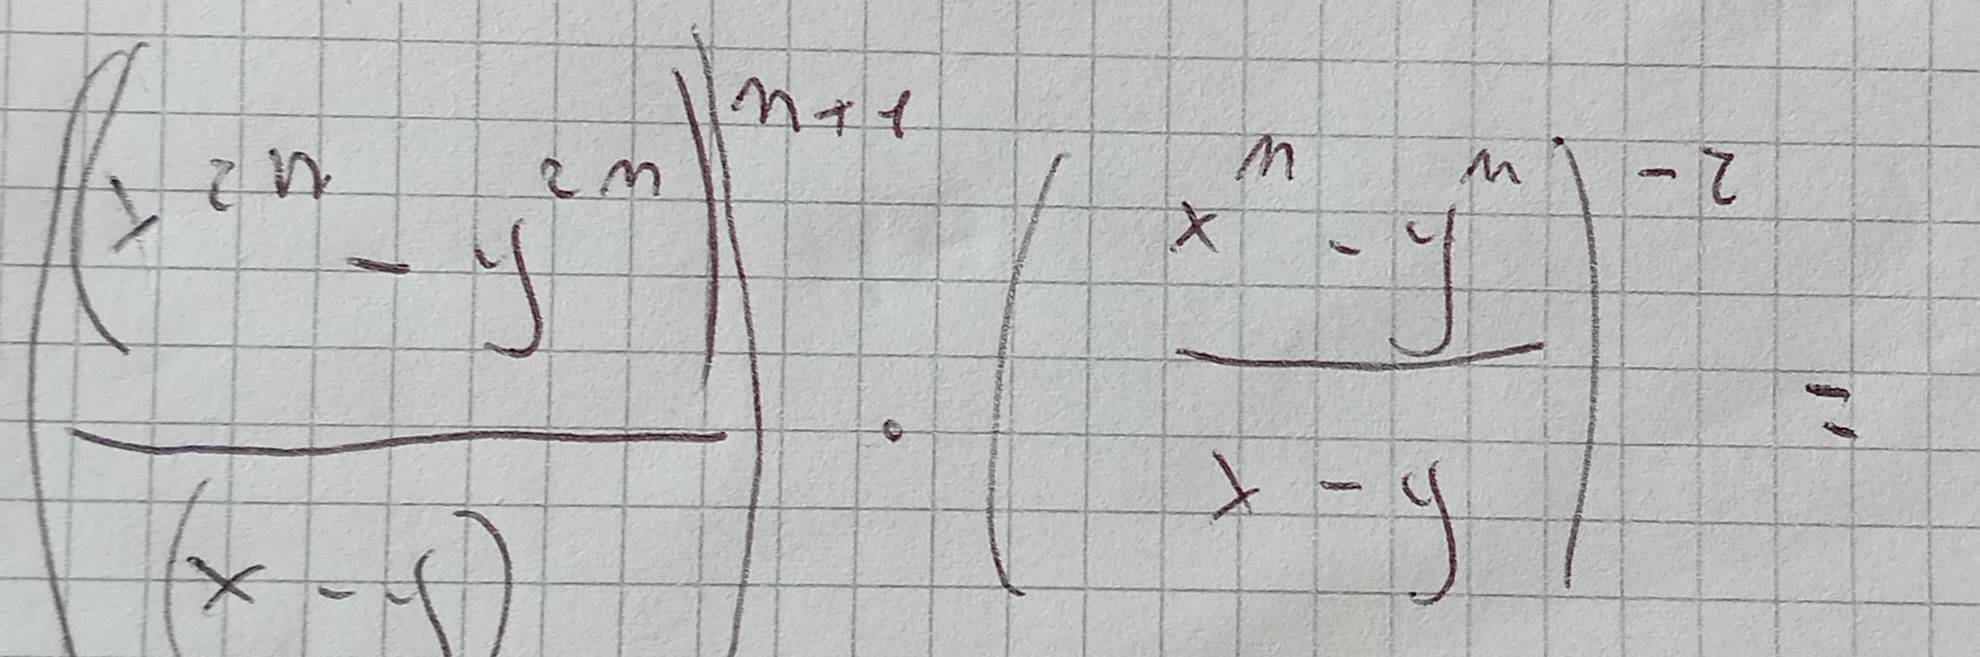 ((x^{2n} - y^{2n}) / (x - y))^{n+1} · ((x^n - y^n) / (x - y))^{-2} =